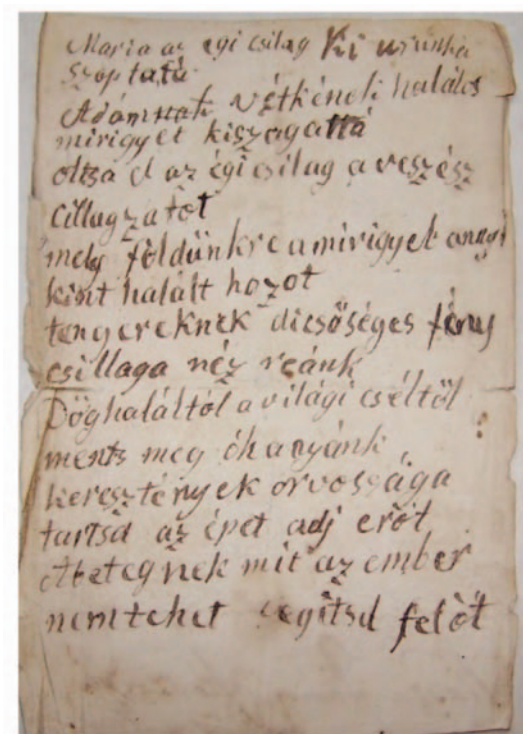 Maria az egi csilag Ki urunka
szoptatá
Adámnak vétkének halálos
mirigyet kiszagattá
oltsa el az égi csilag a veszész
cillagzatot
mely földünkre a mirigyet annyi
kint halált hozot
tengereknek dicsőséges fény
csillaga néz reánk
Döghaláltól a világi cséltől
ments meg óh anyánk
keresztények orvossága
tartsd az épet adj erőt
Abetegnek mit az ember
nemtehet segitsd felőt